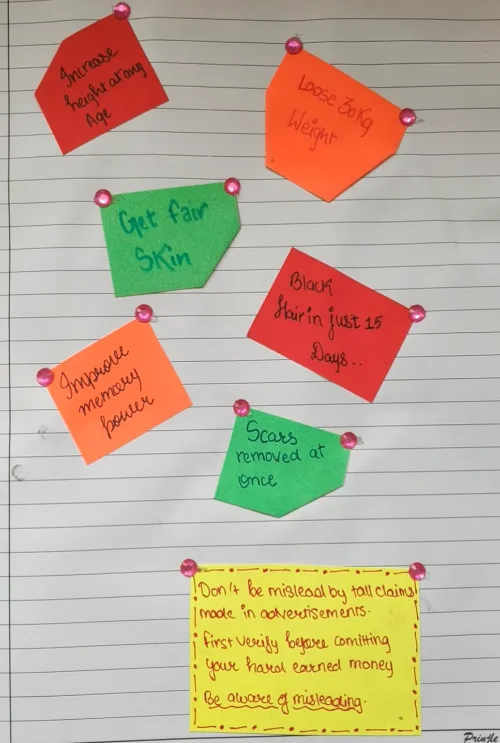 Increase
height at any
Age
Loose 30 Kg
Weight
Get fair
Skin
Black
Hair in just 15
Days..
Improve
memory
power
Scars
removed at
once
Don't be mislead by tall claims
made in advertisements.
First verify before comitting
your hard earned money
Be aware of misleading.